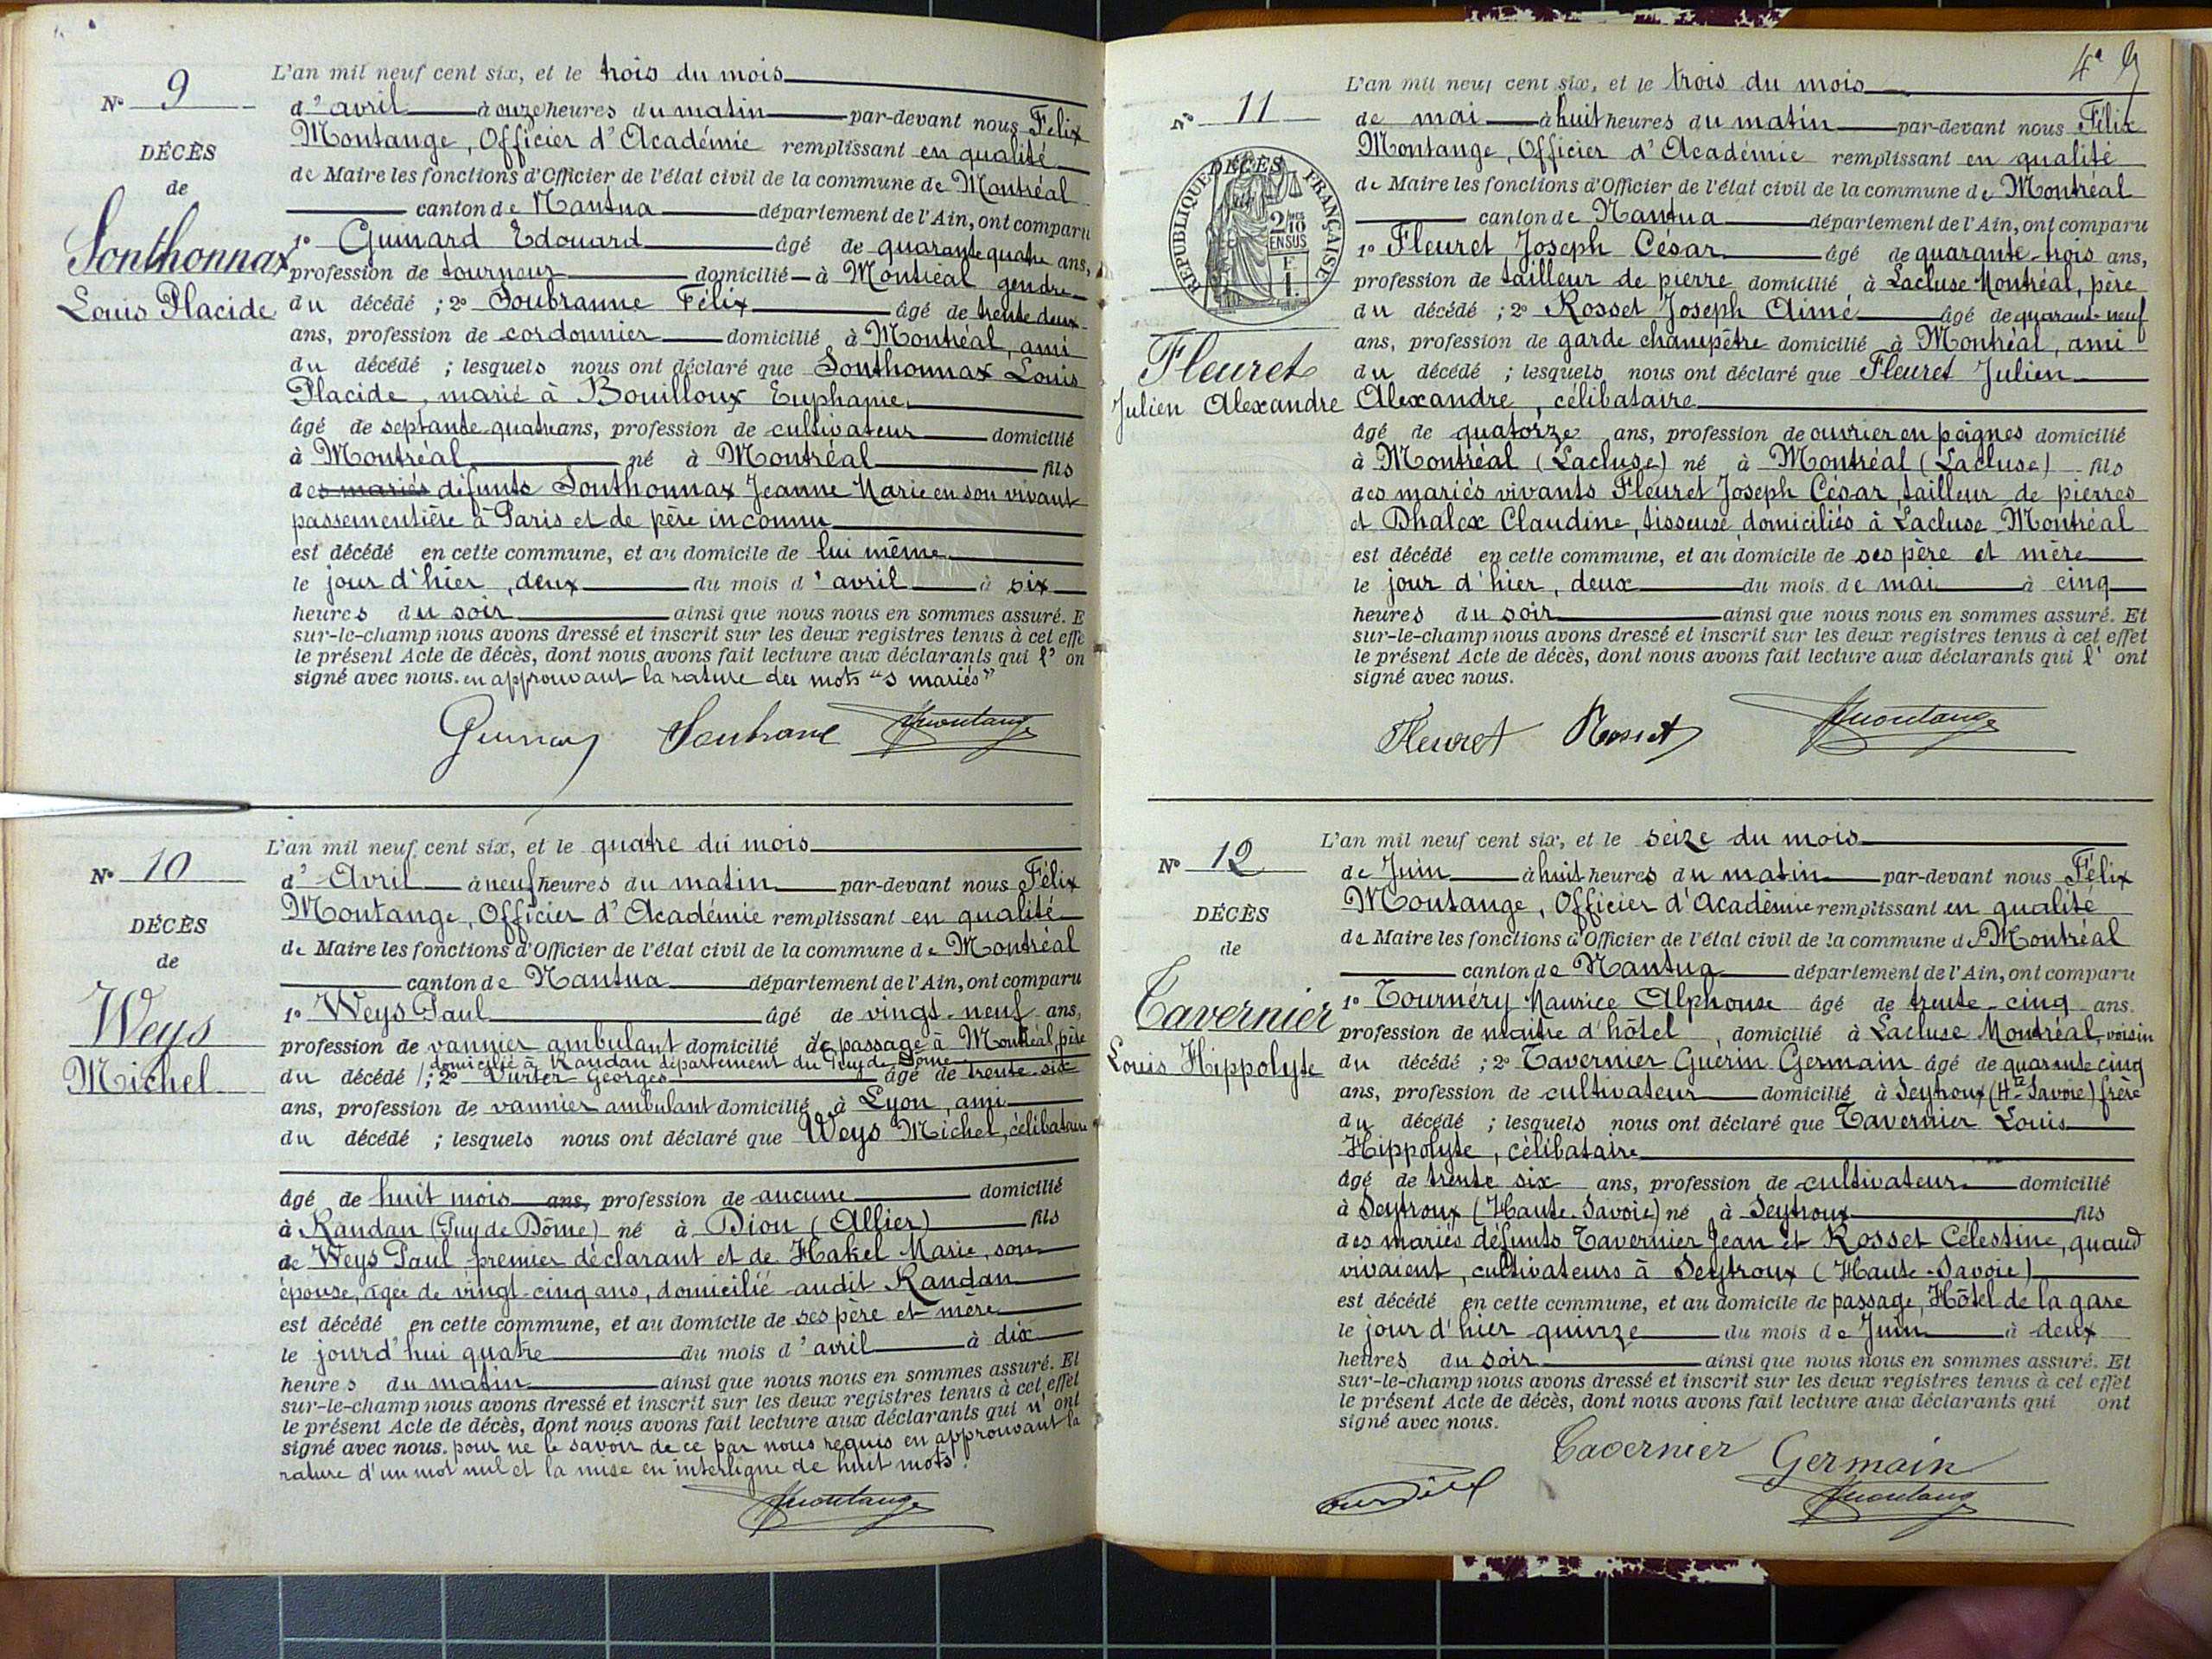 N° 9
DÉCÈS
de
Sonthonnax
Louis Placide
L'an mil neuf cent six, et le trois du mois
d'avril à onze heures du matin par-devant nous Félix
Montange, Officier d'Académie remplissant en qualité
de Maire les fonctions d'Officier de l'état civil de la commune de Montréal
canton de Nantua département de l'Ain, ont comparu
1° Guinard Edouard âgé de quarante quatre ans,
profession de tourneur domicilié à Montréal gendre
du décédé ; 2° Soubranne Félix âgé de trente deux
ans, profession de cordonnier domicilié à Montréal, ami
du décédé ; lesquels nous ont déclaré que Sonthonnax Louis
Placide, marié à Bouilloux Euphanie,
âgé de septante-quatre ans, profession de cultivateur domicilié
à Montréal né à Montréal fils
des mariés défunte Sonthonnax Jeanne Marie en son vivant
passementière à Paris et de père inconnu
est décédé en cette commune, et au domicile de lui même
le jour d'hier, deux du mois d'avril à six
heures du soir ainsi que nous nous en sommes assuré. E
sur-le-champ nous avons dressé et inscrit sur les deux registres tenus à cet effe
le présent Acte de décès, dont nous avons fait lecture aux déclarants qui l' on
signé avec nous. en approuvant la rature des mots "s mariés"
Guinard Soubrane Montange
N° 10
DÉCÈS
de
Weys
Michel
L'an mil neuf cent six, et le quatre du mois
d'Avril à neuf heures du matin par-devant nous Félix
Montange, Officier d'Académie remplissant en qualité
de Maire les fonctions d'Officier de l'état civil de la commune de Montréal
canton de Nantua département de l'Ain, ont comparu
1° Weys Paul âgé de vingt-neuf ans,
profession de vannier ambulant domicilié de passage à Montréal, père
domicilié à Randan département du Puy de Dôme
du décédé ; 2° Vurter Georges âgé de trente-six
ans, profession de vannier ambulant domicilié à Lyon, ami
du décédé ; lesquels nous ont déclaré que Weys Michel, célibataire
âgé de huit mois ans, profession de aucune domicilié
à Randan (Puy de Dôme) né à Diou (Allier) fils
de Weys Paul premier déclarant et de Hakel Marie, son
épouse, âgée de vingt-cinq ans, domiciliée audit Randan
est décédé en cette commune, et au domicile de ses père et mère
le jourd'hui quatre du mois d'avril à dix
heures du matin ainsi que nous nous en sommes assuré. Et
sur-le-champ nous avons dressé et inscrit sur les deux registres tenus à cet effet
le présent Acte de décès, dont nous avons fait lecture aux déclarants qui n'ont
signé avec nous. pour ne le savoir de ce par nous requis en approuvant la
rature d'un mot nul et la mise en interligne de huit mots.
Montange
4e
N° 11
DÉCÈS
RÉPUBLIQUE FRANÇAISE
2/10 EN SUS
Fleuret
Julien Alexandre
L'an mil neuf cent six, et le trois du mois
de mai à huit heures du matin par-devant nous Félix
Montange, Officier d'Académie remplissant en qualité
de Maire les fonctions d'Officier de l'état civil de la commune de Montréal
canton de Nantua département de l'Ain, ont comparu
1° Fleuret Joseph César âgé de quarante-trois ans,
profession de tailleur de pierre domicilié à Lacluse Montréal, père
du décédé ; 2° Rosset Joseph Aimé âgé de quarante-neuf
ans, profession de garde champêtre domicilié à Montréal, ami
du décédé ; lesquels nous ont déclaré que Fleuret Julien
Alexandre, célibataire
âgé de quatorze ans, profession de ouvrier en peignes domicilié
à Montréal (Lacluse) né à Montréal (Lacluse) fils
des mariés vivants Fleuret Joseph César, tailleur de pierres
et Dhalex Claudine, tisseuse domiciliés à Lacluse Montréal
est décédé en cette commune, et au domicile de ses père et mère
le jour d'hier, deux du mois de mai à cinq
heures du soir ainsi que nous nous en sommes assuré. Et
sur-le-champ nous avons dressé et inscrit sur les deux registres tenus à cet effet
le présent Acte de décès, dont nous avons fait lecture aux déclarants qui l' ont
signé avec nous.
Fleuret Rosset Montange
N° 12
DÉCÈS
de
Tavernier
Louis Hippolyte
L'an mil neuf cent six, et le seize du mois
de Juin à huit heures du matin par-devant nous Félix
Montange, Officier d'Académie remplissant en qualité
de Maire les fonctions d'Officier de l'état civil de la commune de Montréal
canton de Nantua département de l'Ain, ont comparu
1° Tournéry Maurice Alphonse âgé de trente-cinq ans.
profession de maître d'hôtel, domicilié à Lacluse Montréal, voisin
du décédé ; 2° Tavernier Guérin Germain âgé de quarante cinq
ans, profession de cultivateur domicilié à Seytroux (Hte Savoie) frère
du décédé ; lesquels nous ont déclaré que Tavernier Louis
Hippolyte, célibataire
âgé de trente six ans, profession de cultivateur domicilié
à Seytroux (Haute-Savoie) né à Seytroux fils
des mariés défunts Tavernier Jean et Rosset Célestine, quand
vivaient, cultivateurs à Seytroux (Haute-Savoie)
est décédé en cette commune, et au domicile de passage, Hôtel de la gare
le jour d'hier quinze du mois de Juin à deux
heures du soir ainsi que nous nous en sommes assuré. Et
sur-le-champ nous avons dressé et inscrit sur les deux registres tenus à cet effet
le présent Acte de décès, dont nous avons fait lecture aux déclarants qui ont
signé avec nous.
Tavernier Germain
Montange